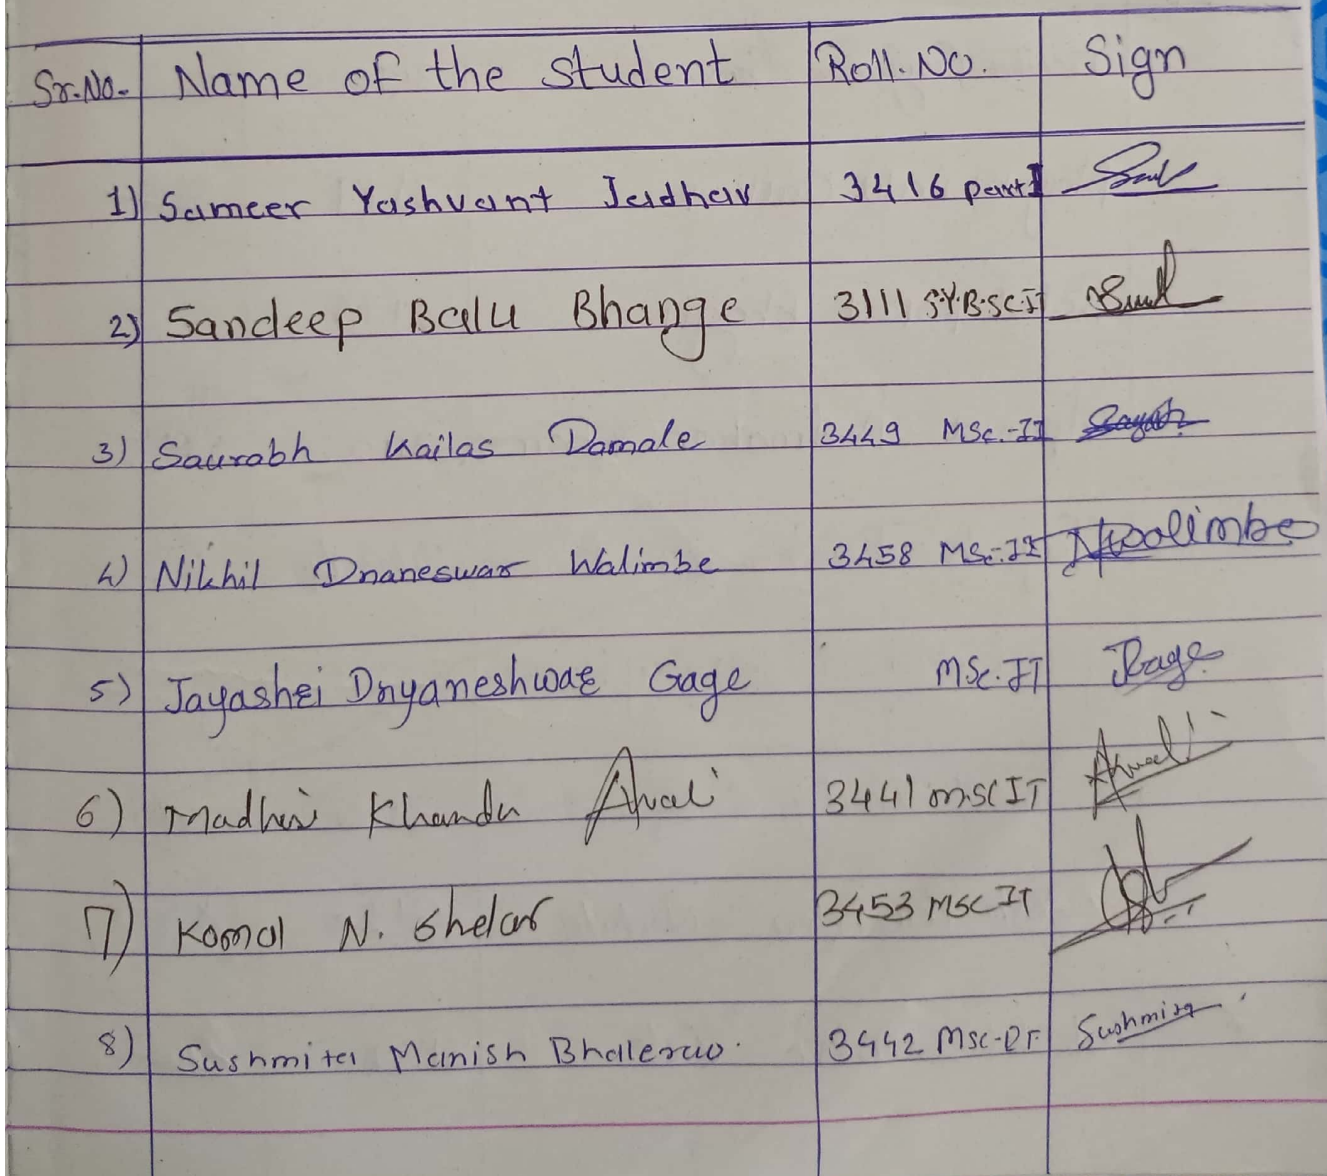 Sr.No. Name of the student Roll.No. Sign
1) Sameer Yashvant Jadhav 3416 part I
2) Sandeep Balu Bhange 3111 S.Y.B.SC.IT
3) Saurabh Kailas Damale 3449 MSc.-II
4) Nikhil Dnaneswar Walimbe 3458 MSc.-II Nwalimbe
5) Jayashri Dnyaneshwar Gage MSc.IT Jgage
6) Madhuri Khandu Avali 3441 m.sc IT
7) Komal N. Shelar 3453 MSC IT
8) Sushmita Manish Bhalerao. 3442 Msc- Sushmita